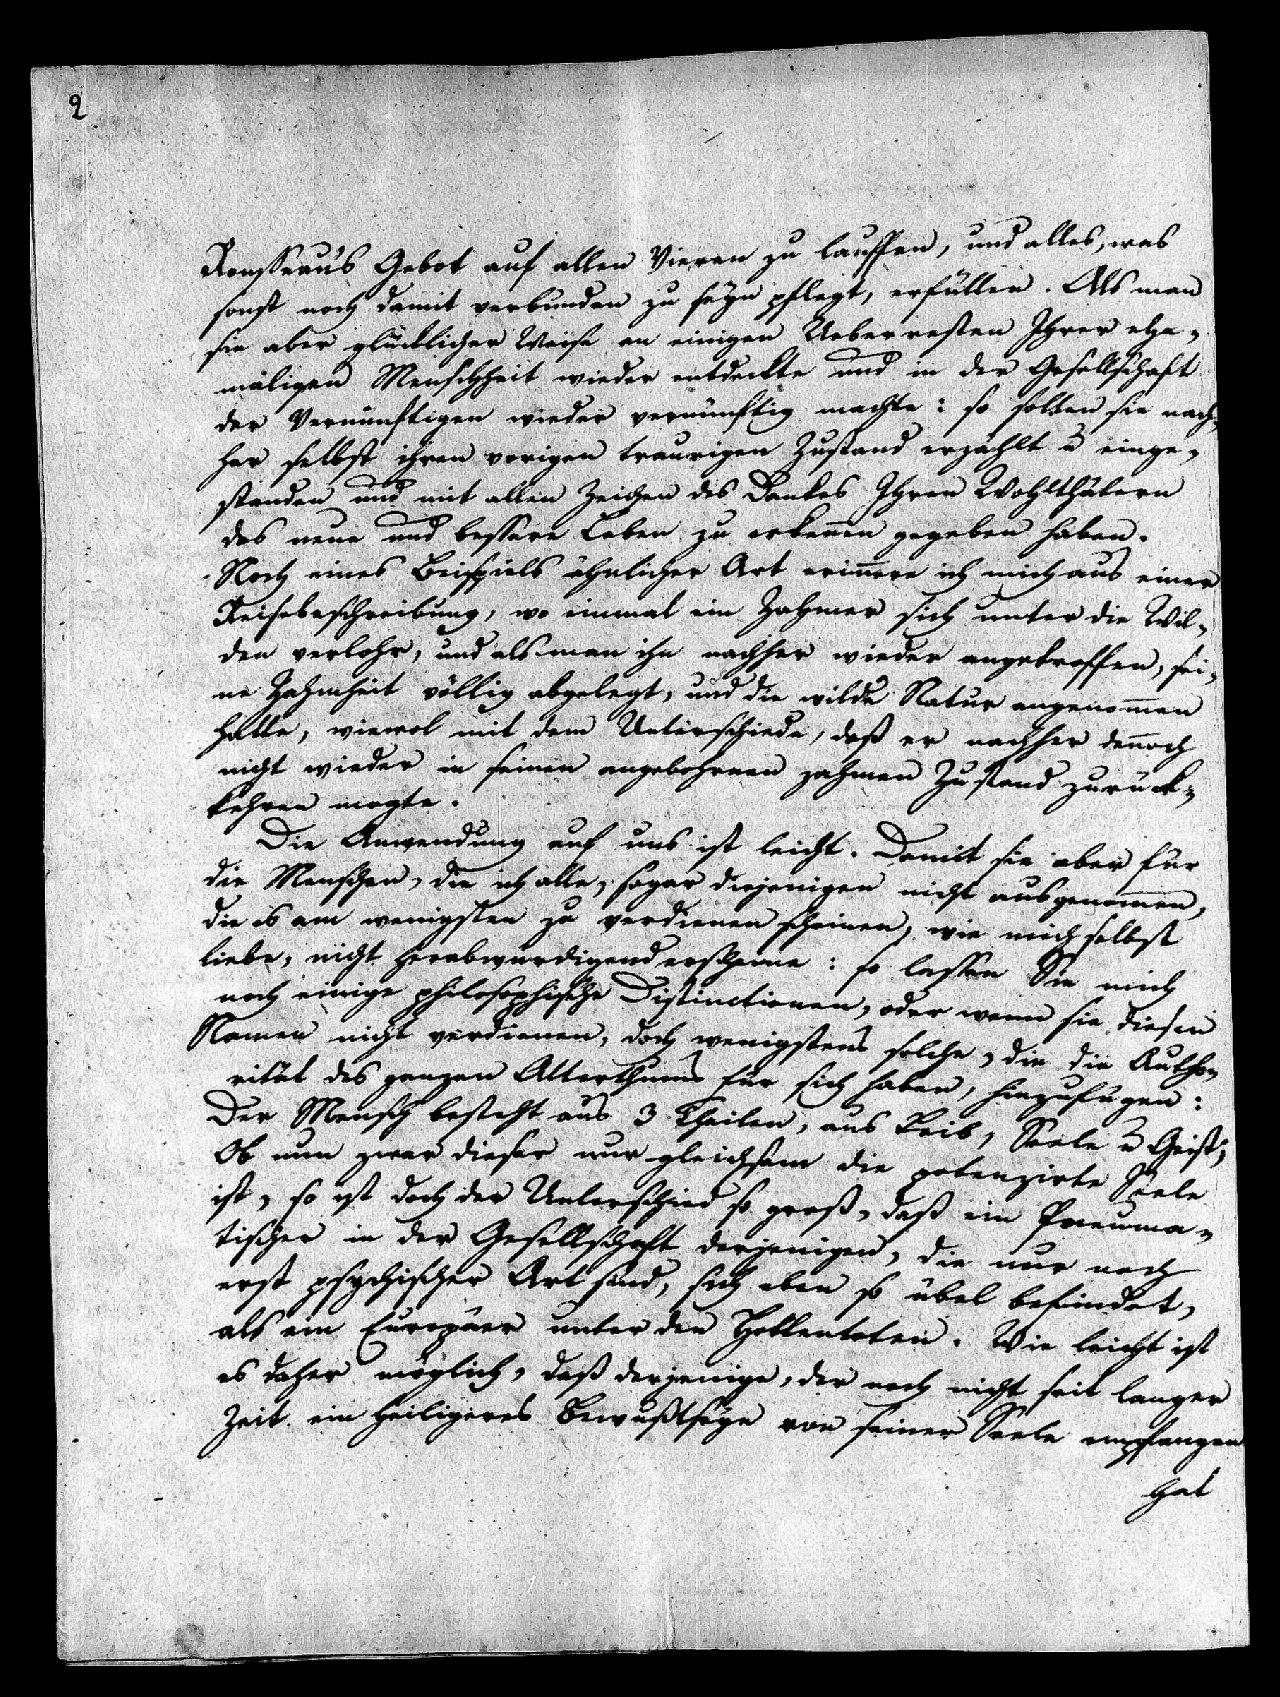 2
Rousseau's Gebot auf allen Vieren zu lauffen, und alles, was
sonst noch damit verbunden zu seyn pflegt, erfüllen. Als man
sie aber glücklicher Weise an einigen Ueberresten Ihrer ehe-
maligen Menschheit wieder entdeckte und in der Gesellschaft
der Vernünftigen wieder vernünftig machte: so sollen sie nach-
her selbst ihren vorigen traurigen Zustand erzählt u einge-
standen und mit allen Zeichen des Dankes Ihren Wohlthätern
das neue und bessere Leben zu erkennen gegeben haben.
Noch eines Beispiels ähnlicher Art erinnere ich mich aus einer
Reisebeschreibung, wo einmal ein Zahmer sich unter die Wil-
den verlohr, und als man ihn nachher wieder angetroffen, sei-
ne Zahmheit völlig abgelegt, und die wilde Natur angenommen
hatte, wiewol mit dem Unterschiede, daß er nachher dennoch
nicht wieder in seinen angebohrnen zahmen Zustand zurück-
kehren mogte.
Die Anwendung auf uns ist leicht. Damit sie aber für
die Menschen, die ich alle, sogar diejenigen nicht ausgenommen,
die es am wenigsten zu verdienen scheinen, wie mich selbst
liebe, nicht herabwürdigend erscheine: so lassen Sie mich
noch einige philosophische Distinctionen, oder wenn sie diesen
Namen nicht verdienen, doch wenigstens solche, die die Autho-
rität des ganzen Alterthums für sich haben, hinzufügen:
Der Mensch besteht aus 3 Theilen, aus Leib, Seele u Geist;
Ob nun zwar dieser nur gleichsam die potenzirte Seele
ist, so ist doch der Unterschied so groß, daß ein Pneuma-
tischer in der Gesellschaft derjenigen, die nur noch
erst psychischer Art sind, sich eben so übel befindet,
als ein Europäer unter den Hottentoten. Wie leicht ist
es daher möglich, daß derjenige, der noch nicht seit langer
Zeit ein heiligeres Bewußtseyn von seiner Seele empfangen
hat